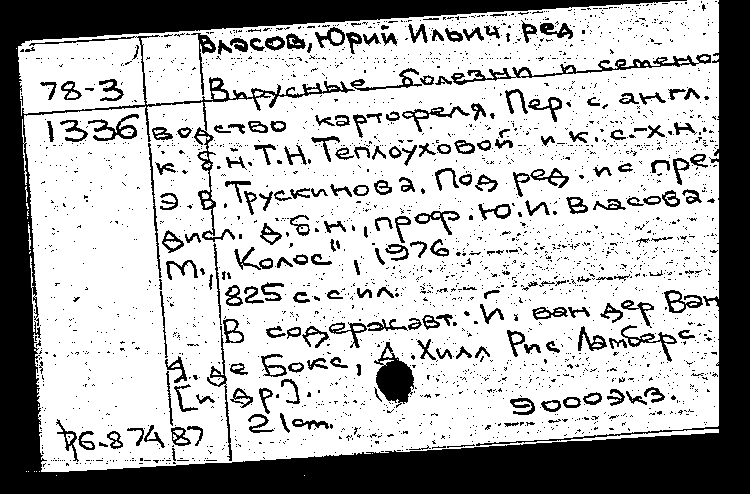 Власов, Юрий Ильич, ред.
78-3
Вирусные болезни и семено-
1336
водство картофеля. Пер. с англ.
к. б. н. Т. Н. Теплоуховой и к. с.-х. н.
Э. В. Трускинова. Под ред. и с пре-
дисл. д. б. н., проф. Ю. И. Власова.
М., „Колос", 1976.
825 с. с ил.
В содерж. авт.: Й. ван дер Ван
А. де Бокс, Д. Хилл Рис Ламберс
[и др.].
21 см. 9000 экз.
76.874 87